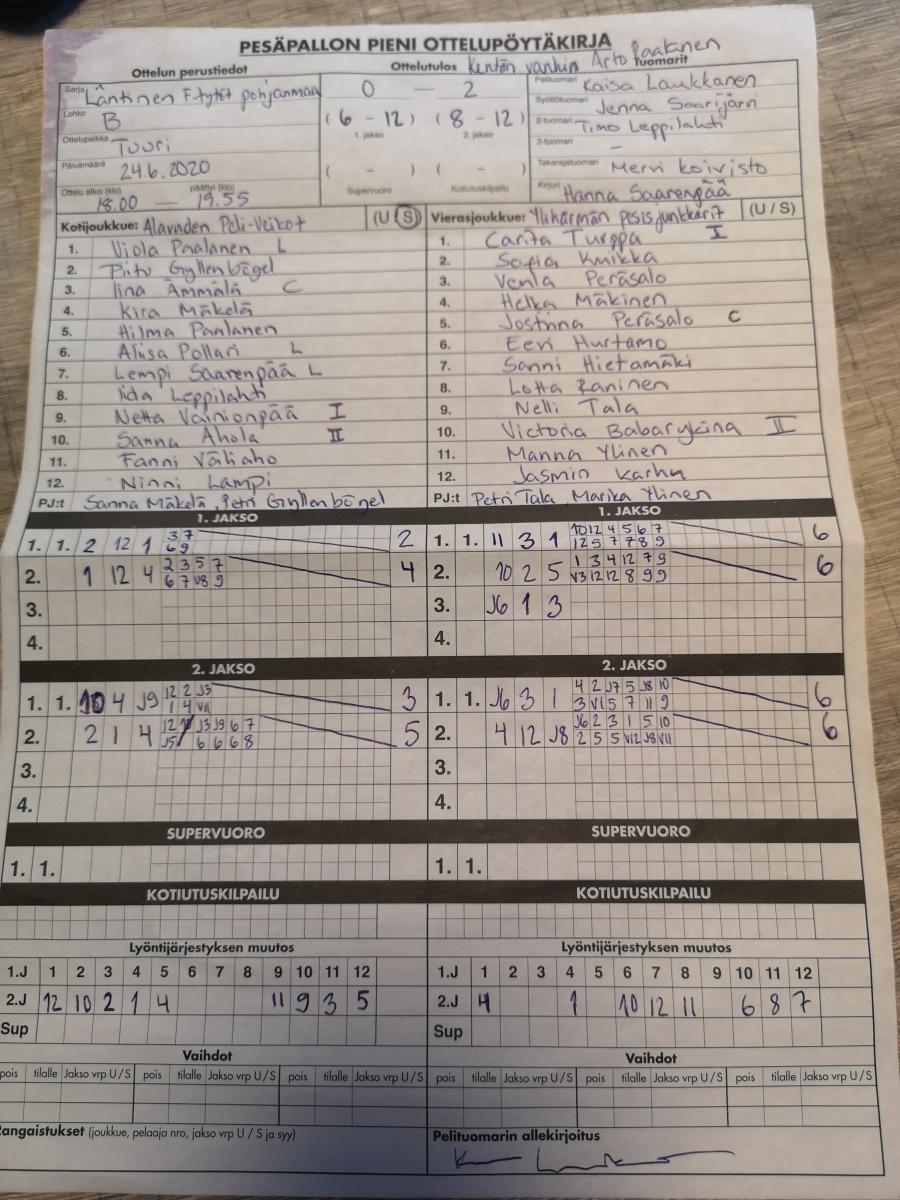 PESÄPALLON PIENI OTTELUPÖYTÄKIRJA
Ottelun perustiedot
Ottelutulos Kentän vanhin Arto Paalanen
Tuomarit
Sarja Läntinen F-tytöt pohjanmaa
Lohko B
Ottelupaikka Tuuri
Päivämäärä 24.6.2020
Ottelu alkoi (klo) päättyi (klo)
18.00 — 19.55
0 — 2
( 6 - 12 ) ( 8 - 12 )
1. jakso 2. jakso
( - ) ( - )
Supervuoro Kotiutuskilpailu
Pelituomari Kaisa Laukkanen
Syöttötuomari Jenna Saarijärvi
2-tuomari Timo Leppilahti
3-tuomari –
Takarajatuomari Mervi Koivisto
Kirjuri Hanna Saarenpää
Kotijoukkue: Alavuden Peli-Veikot (U / S)
1. Viola Paalanen L
2. Piitu Gyllenbögel
3. Iina Ämmälä C
4. Kira Mäkelä
5. Hilma Paalanen
6. Aliisa Pollari L
7. Lempi Saarenpää L
8. Iida Leppilahti
9. Netta Vainionpää I
10. Sanna Ahola II
11. Fanni Väliaho
12. Ninni Lampi
PJ:t Sanna Mäkelä, Petri Gyllenbögel
Vierasjoukkue: Ylihärmän pesisjunkkarit (U / S)
1. Carita Turppa I
2. Sofia Kuikka
3. Venla Peräsalo
4. Helka Mäkinen
5. Jostiina Peräsalo C
6. Eevi Hurtamo
7. Sanni Hietamäki
8. Lotta Raninen
9. Nelli Tala
10. Victoria Babarykina II
11. Manna Ylinen
12. Jasmin Karhu
PJ:t Petri Tala Marika Ylinen
1. JAKSO
1. 1. 2 12 1 3 7 2
6 9
2. 1 12 4 2 3 5 7 4
6 7 V8 9
3.
4.
1. JAKSO
1. 1. 11 3 1 10 12 4 5 6 7 6
12 5 7 7 8 9
2. 10 2 5 1 3 4 12 7 9 6
V3 12 12 8 9 9
3. J6 1 3
4.
2. JAKSO
1. 1. 10 4 J9 12 2 J3 3
1 4 V11
2. 2 1 4 12 J3 J9 6 7 5
J5 6 6 6 8
3.
4.
2. JAKSO
1. 1. J6 3 1 4 2 J7 5 J8 10 6
3 V1 5 7 11 9
2. 4 12 J8 J6 2 3 1 5 10 6
2 5 5 V12 J8 V11
3.
4.
SUPERVUORO
1. 1.
SUPERVUORO
1. 1.
KOTIUTUSKILPAILU
KOTIUTUSKILPAILU
Lyöntijärjestyksen muutos
1.J 1 2 3 4 5 6 7 8 9 10 11 12
2.J 12 10 2 1 4 11 9 3 5
Sup
Lyöntijärjestyksen muutos
1.J 1 2 3 4 5 6 7 8 9 10 11 12
2.J 4 1 10 12 11 6 8 7
Sup
Vaihdot
pois tilalle Jakso vrp U / S pois tilalle Jakso vrp U / S pois tilalle Jakso vrp U / S
Vaihdot
pois tilalle Jakso vrp U / S pois tilalle Jakso vrp U / S pois tilalle Jakso vrp U / S
Rangaistukset (joukkue, pelaaja nro, jakso vrp U / S ja syy)
Pelituomarin allekirjoitus